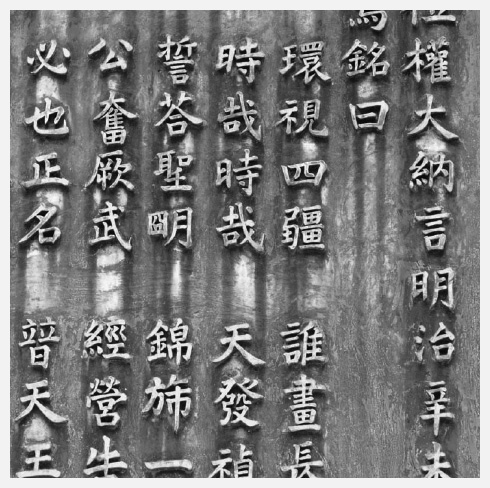 權大納言明治辛未
銘曰
環視四疆 誰畫長
時哉時哉 天發禎
誓荅聖朙 錦旆一
公奮厥武 經營
必也正名 普天王